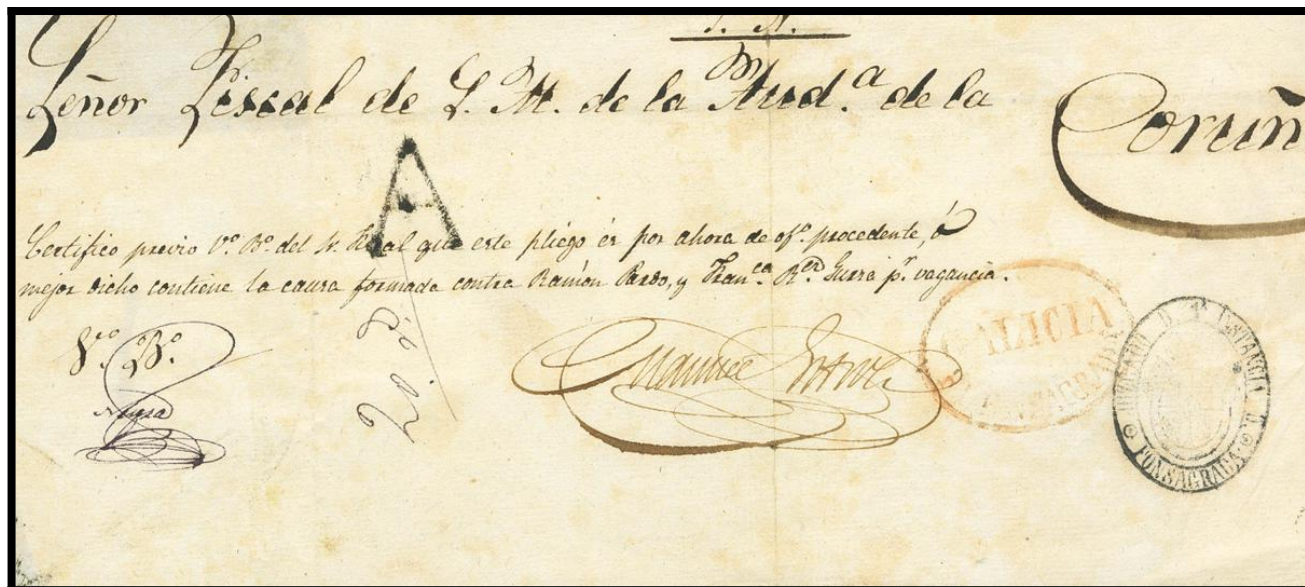 S. N.
Señor Fiscal de S. M. de la Aud.ª de la
Coruñ
A
Certifico previo V.º B.º del Sr. Fiscal que este pliego és por ahora de of.º procedente, ó
mejor dicho contiene la causa formada contra Ramón Pardo, y Fran.ca R.ez Guerra p.r vagancia.
V.º B.º
GALICIA
FONSAGRADA
JUZGADO D 1ª INSTANCIA D
FONSAGRADA